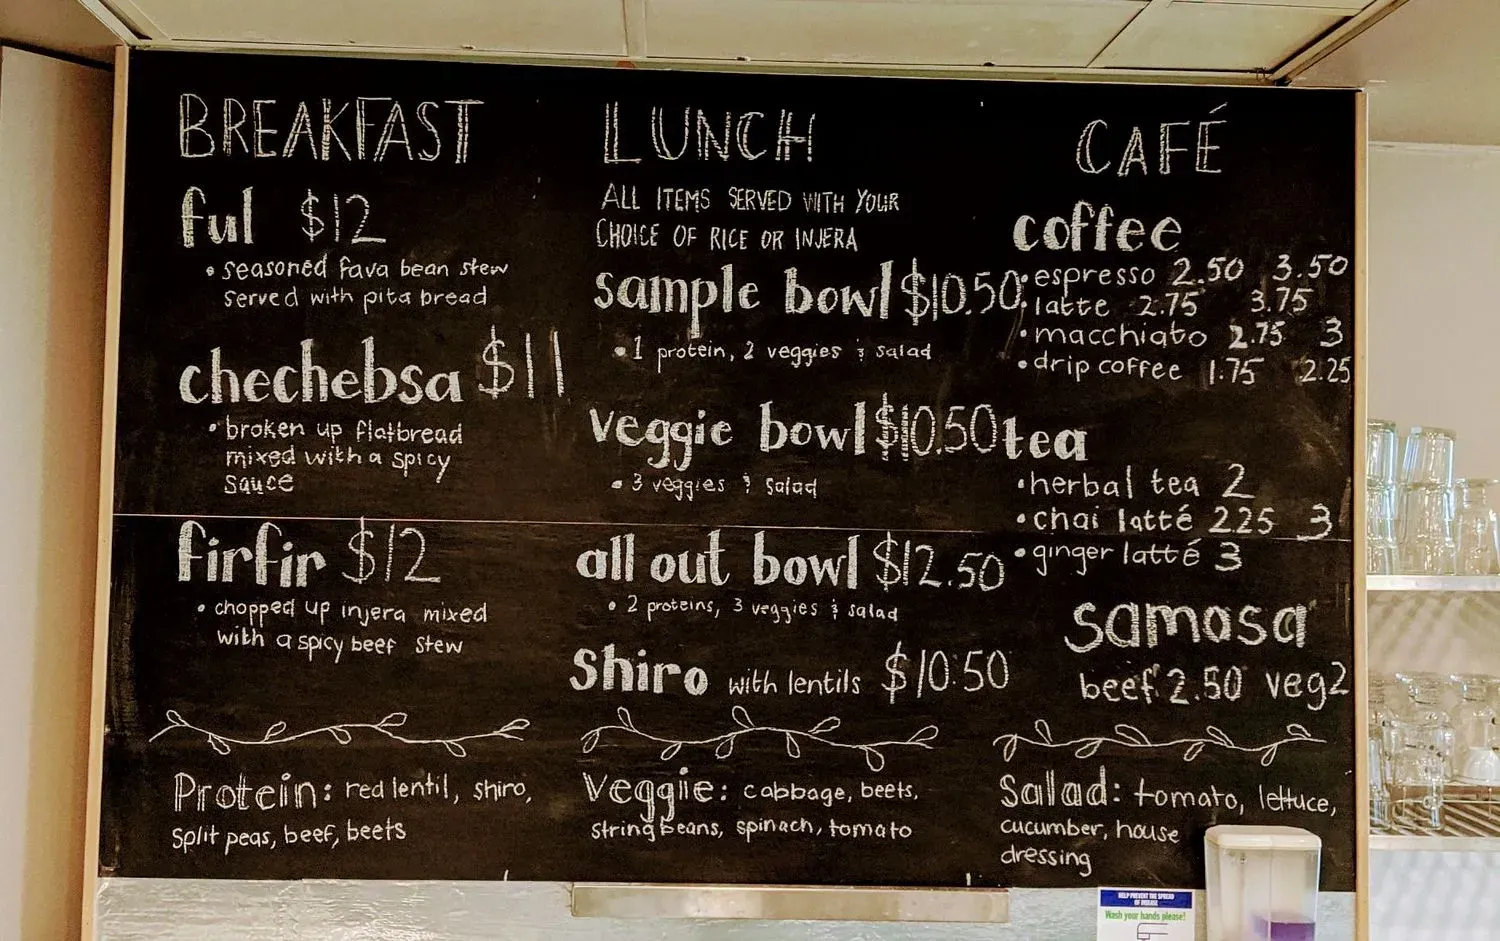 BREAKFAST
ful $12
• seasoned fava bean stew
served with pita bread
chechebsa $11
• broken up flatbread
mixed with a spicy
sauce
firfir $12
• chopped up injera mixed
with a spicy beef stew
LUNCH
ALL ITEMS SERVED WITH YOUR
CHOICE OF RICE OR INJERA
sample bowl $10.50
• 1 protein, 2 veggies & salad
veggie bowl $10.50
• 3 veggies & salad
all out bowl $12.50
• 2 proteins, 3 veggies & salad
shiro with lentils $10.50
CAFÉ
coffee
• espresso 2.50 3.50
• latte 2.75 3.75
• macchiato 2.75 3
• drip coffee 1.75 2.25
tea
• herbal tea 2
• chai latté 225 3
• ginger latté 3
samosa
beef 2.50 veg 2
Protein: red lentil, shiro,
split peas, beef, beets
Veggie: cabbage, beets,
string beans, spinach, tomato
Salad: tomato, lettuce,
cucumber, house
dressing
HELP PREVENT THE SPREAD
OF DISEASE
Wash your hands please!